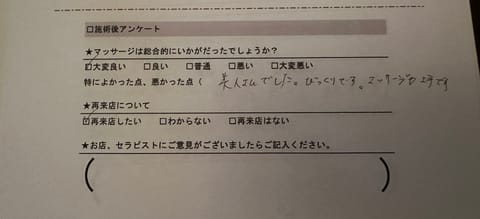 □施術後アンケート
★マッサージは総合的にいかがだったでしょうか?
☑大変良い □良い □普通 □悪い □大変悪い
特によかった点、悪かった点( 美人さんでした。びっくりです。マッサージも上手です
★再来店について
☑再来店したい □わからない □再来店はない
★お店、セラピストにご意見がございましたらご記入ください。
( )